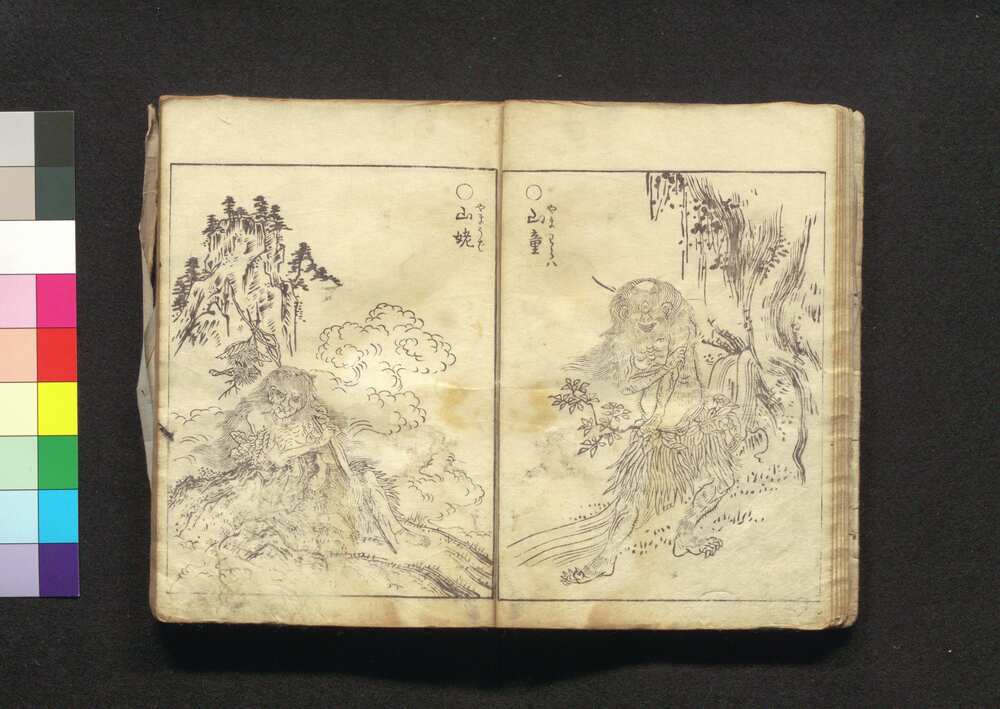 やまわらハ
○山童
やまうば
○山姥